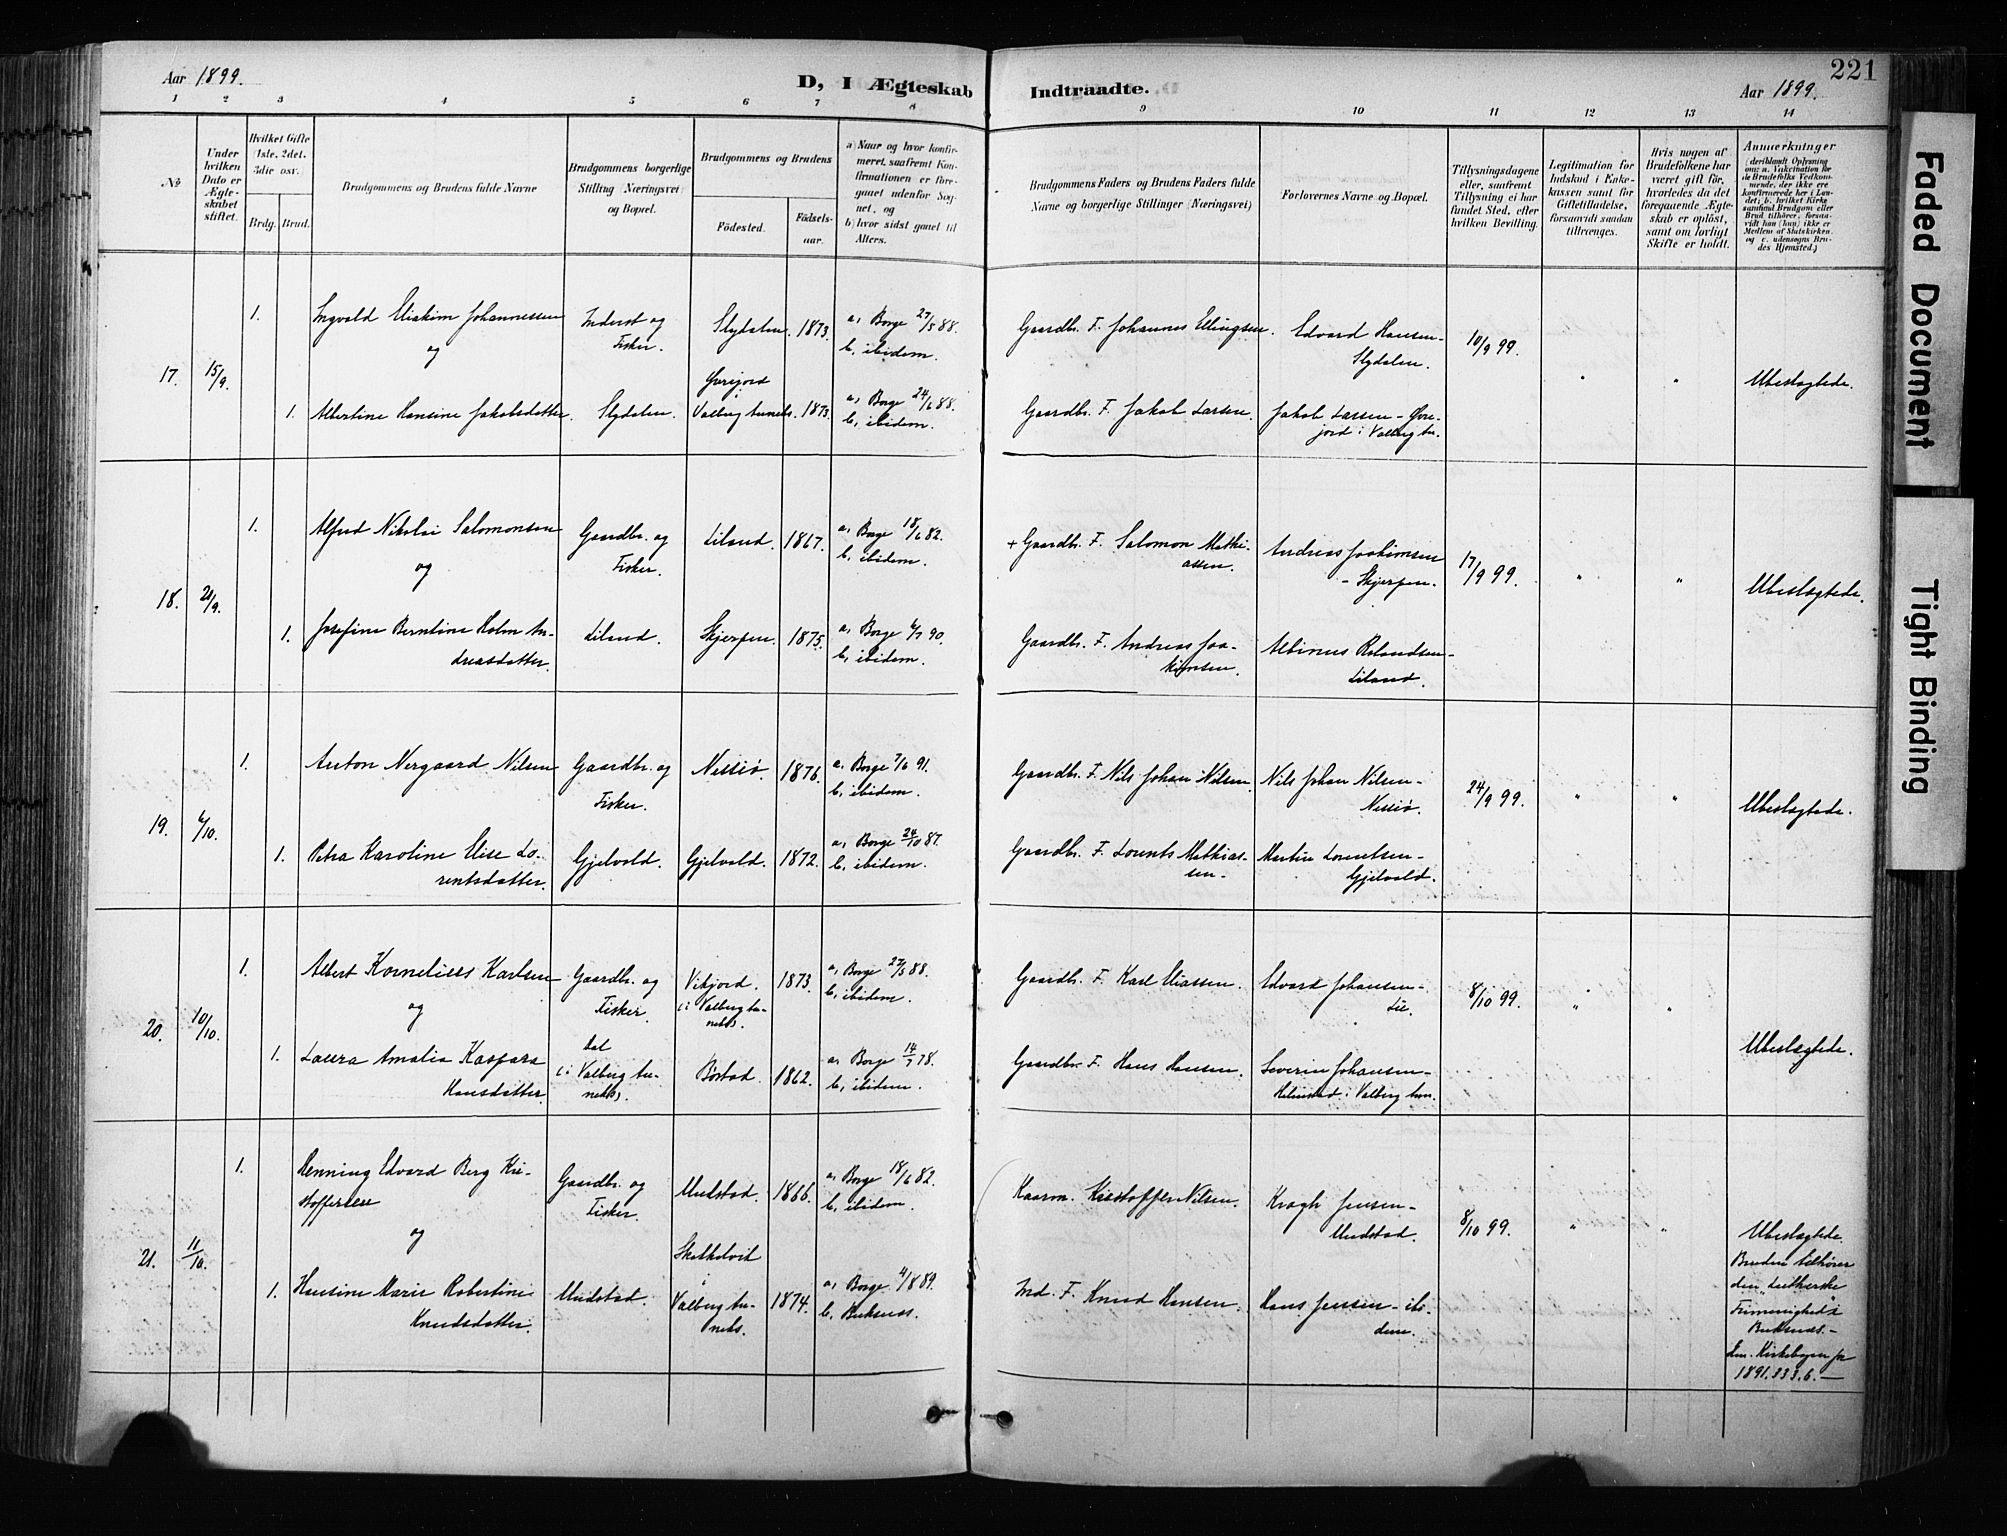 Aar 1899.
D, I Ægteskab
Indtraadte.
Aar 1899.
221
1 2 3 4 5 6 7 8
9 10 11 12 13 14
No
Under hvilken Dato er Ægteskabet stiftet.
Hvilket Gifte (1ste, 2det, 3die osv.
Brdg. Brud.
Brudgommens og Brudens fulde Navne
Brudgommens borgerlige Stilling (Næringsvei) og Bopæl.
Brudgommens og Brudens
Födested.
Födsels-aar.
a) Naar og hvor konfirmeret, saafremt Konfirmationen er foregaaet udenfor Sognet, og
b) hvor sidst gaaet til Alters.
Brudgommens Faders og Brudens Faders fulde Navne og borgerlige Stillinger (Næringsvei)
Forlovernes Navne og Bopæl.
Tillysningsdagene eller, saafremt Tillysning ei har fundet Sted, efter hvilken Bevilling.
Legitimation for Indskud i Enkekassen samt for Giftetilladelse, forsaavidt saadan tiltrænges.
Hvis nogen af Brudefolkene har været gift för, hvorledes da det foregaaende Ægteskab er oplöst, samt om lovligt Skifte er holdt.
Anmerkninger
17. 15/9. 1. Ingvald Eliakim Johannessen Inderst og Slydalen. 1873. a, Borge 27/5 88. Gaardbr. F. Johannes Ellingsen. Edvard Hansen-
og Fisker. b, ibidem. Slydalen. 10/9 99. " " Ubeslægtede.
1. Albertine Hansine Jakobsdatter. Slydalen. Valberg anneks. 1873. a, Borge 24/6 88. Gaardbr. F. Jakob Larsen. Jakob Larsen -
b, ibidem. jord i Valberg an.
18. 21/9. 1. Alfred Nikolai Salomonsen Gaardbr. og Liland. 1867. a, Borge 18/6 82. + Gaardbr. F. Salomon Mathi- Andreas Joakimsen
og Fisker. b, ibidem. assen. - Skjerpen. 17/9 99. " " Ubeslægtede.
1. Josefine Berntine Holm An- Liland. Skjerpen. 1875. a, Borge 6/7 90. Gaardbr. F. Andreas Joa- Albinus Rolandsen-
dreasdatter. b, ibidem. kimsen. Liland.
19. 6/10. 1. Anton Nergaard Nilsen Gaardbr. og 1876. a, Borge 7/6 91. Gaardbr. F. Nils Johan Nilsen. Nils Johan Nilsen-
Fisker. b, ibidem. 24/9 99. " " Ubeslægtede.
1. Petra Karoline Elise Lo- Gjelvold. Gjelvold. 1872. a, Borge 24/10 87. Gaardbr. F. Lorents Mathias- Martin Lorentsen-
rentsdatter. b, ibidem. sen. Gjelvold.
20. 10/10. 1. Albert Kornelius Karlsen Gaardbr. og Vikjord. 1873. a, Borge 27/5 88. Gaardbr. F. Karl Eliassen. Edvard Johansen-
og Fisker. (i Valberg an- b, ibidem. Lie. 8/10 99. " "
neks). Ubeslægtede.
1. Laura Amalia Kaspara Dal Børstad. 1862. a, Borge 14/7 78. Gaardbr. F. Hans Hansen. Severin Johansen-
Hansdatter. (i Valberg an- b, ibidem. i Valberg ann.
neks).
21. 11/10. 1. Henning Edvard Berg Kri- Gaardbr. og Undstad. 1866. a, Borge 18/6 82. Kaarm. Kristoffer Nilsen. Kragh Jensen-
stoffersen Fisker. b, ibidem. Undstad. 8/10 99. " " Ubeslægtede.
og Skulkelvik
1. Hansine Marie Robertine Undstad. i Valberg an- 1874. a, Borge 4/8 89. Ind. F. Knud Hansen. Hans Jensen - ibi-
Knudsdatter. neks. b, Buksnes. dem.
Bruden tilhører
den "Lutherske
Frimenighed" i
Buksnes. -
Em. Kirkebogen for
1891. 333. 6. -
Faded Document
Tight Binding